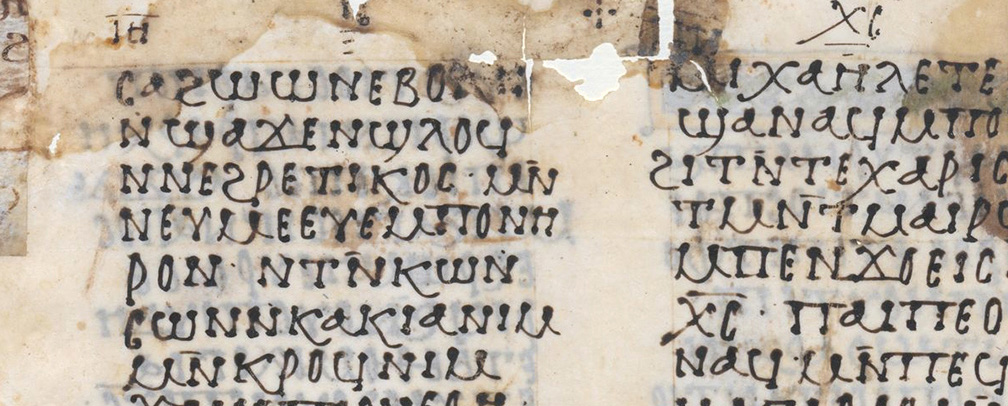 ⲓⲏ
ⲭⲥ
ⲥⲁϩⲱⲱⲛⲉⲃⲟ
ⲛϣⲁϫⲉⲛϣⲗⲟϥ
ⲛⲛⲉϩⲣⲉⲧⲓⲕⲟⲥ· ⲙⲛ̄
ⲛⲉⲩⲙⲉⲉⲩⲉⲙⲡⲟⲛⲏ
ⲣⲟⲛ· ⲛⲧⲛ̄ⲕⲱⲛ
ⲥⲱⲛⲛⲕⲁⲕⲓⲁⲛⲓⲙ
ⲙⲛ̄ⲕⲣⲟϥⲛⲓⲙ
ⲙⲓⲭⲁⲏⲗⲉⲧⲉ
ϣⲁⲛⲁϥⲙⲡⲟ
ϩⲓⲧⲛ̄ⲧⲉⲭⲁⲣⲓⲥ
ⲧⲙⲛ̄ⲧⲙⲁⲓⲣ
ⲙⲡⲉⲛϫⲟⲉⲓⲥ
ⲭ̅ⲥ̅· ⲡⲁⲓⲡⲉⲟ
ⲛⲁϥ ⲙⲛ̄ⲡⲉϥ